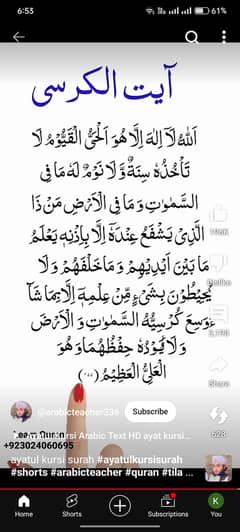 6:53
61%
آیت الکرسی
اَللّٰهُ لَآ اِلٰهَ اِلَّا هُوَ اَلْحَیُّ الْقَیُّوْمُ لَا
تَأْخُذُهٗ سِنَةٌ وَّلَا نَوْمٌ لَهٗ مَا فِی
السَّمٰوٰتِ وَمَا فِی الْاَرْضِ مَنْ ذَا
الَّذِیْ یَشْفَعُ عِنْدَهٗ اِلَّا بِاِذْنِهٖ یَعْلَمُ
مَا بَیْنَ اَیْدِیْهِمْ وَمَا خَلْفَهُمْ وَلَا
یُحِیْطُوْنَ بِشَیْءٍ مِّنْ عِلْمِهٖ اِلَّا بِمَا شَآءَ
وَسِعَ كُرْسِیُّهُ السَّمٰوٰتِ وَالْاَرْضَ
وَلَا یَئُوْدُهٗ حِفْظُهُمَا وَهُوَ
الْعَلِیُّ الْعَظِیْمُ
Dislike
Share
628
@arabicteacher336
Subscribe
Learn Quran
+923024060695
Kursi Arabic Text HD ayat kursi...
ayatul kursi surah #ayatulkursisurah
#shorts #arabicteacher #quran #tila ...
Home
Shorts
Subscriptions
K
You